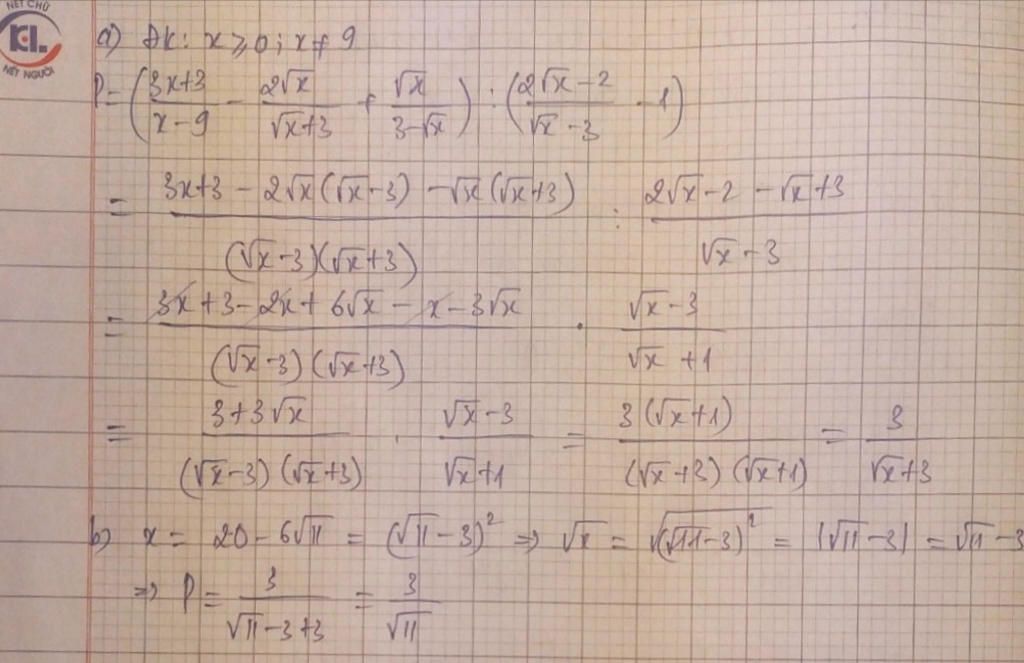 NÉT CHỮ
KL.
NẾT NGƯỜI
a) ĐK: x ≥ 0; x ≠ 9
P = ( (3x+3)/(x-9) - 2√x/(√x+3) + √x/(3-√x) ) : ( (2√x-2)/(√x-3) - 1 )
= (3x+3 - 2√x(√x-3) - √x(√x+3))/((√x-3)(√x+3)) : (2√x-2 - √x+3)/(√x-3)
= (3x+3-2x+6√x-x-3√x)/((√x-3)(√x+3)) . (√x-3)/(√x+1)
= (3+3√x)/((√x-3)(√x+3)) . (√x-3)/(√x+1) = 3(√x+1)/((√x+3)(√x+1)) = 3/(√x+3)
b) x = 20 - 6√11 = (√11-3)² ⇒ √x = √((√11-3)²) = |√11-3| = √11-3
⇒ P = 3/(√11-3+3) = 3/√11